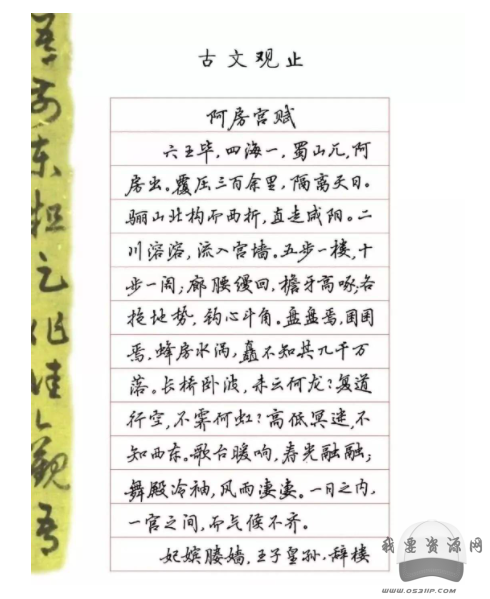 古文观止
阿房宫赋
六王毕,四海一,蜀山兀,阿
房出。覆压三百余里,隔离天日。
骊山北构而西折,直走咸阳。二
川溶溶,流入宫墙。五步一楼,十
步一阁;廊腰缦回,檐牙高啄;各
抱地势,钩心斗角。盘盘焉,囷囷
焉,蜂房水涡,矗不知其几千万
落。长桥卧波,未云何龙?复道
行空,不霁何虹?高低冥迷,不
知西东。歌台暖响,春光融融;
舞殿冷袖,风雨凄凄。一日之内,
一宫之间,而气候不齐。
妃嫔媵嫱,王子皇孙,辞楼
我要资源网
WWW.OS3IIP.COM